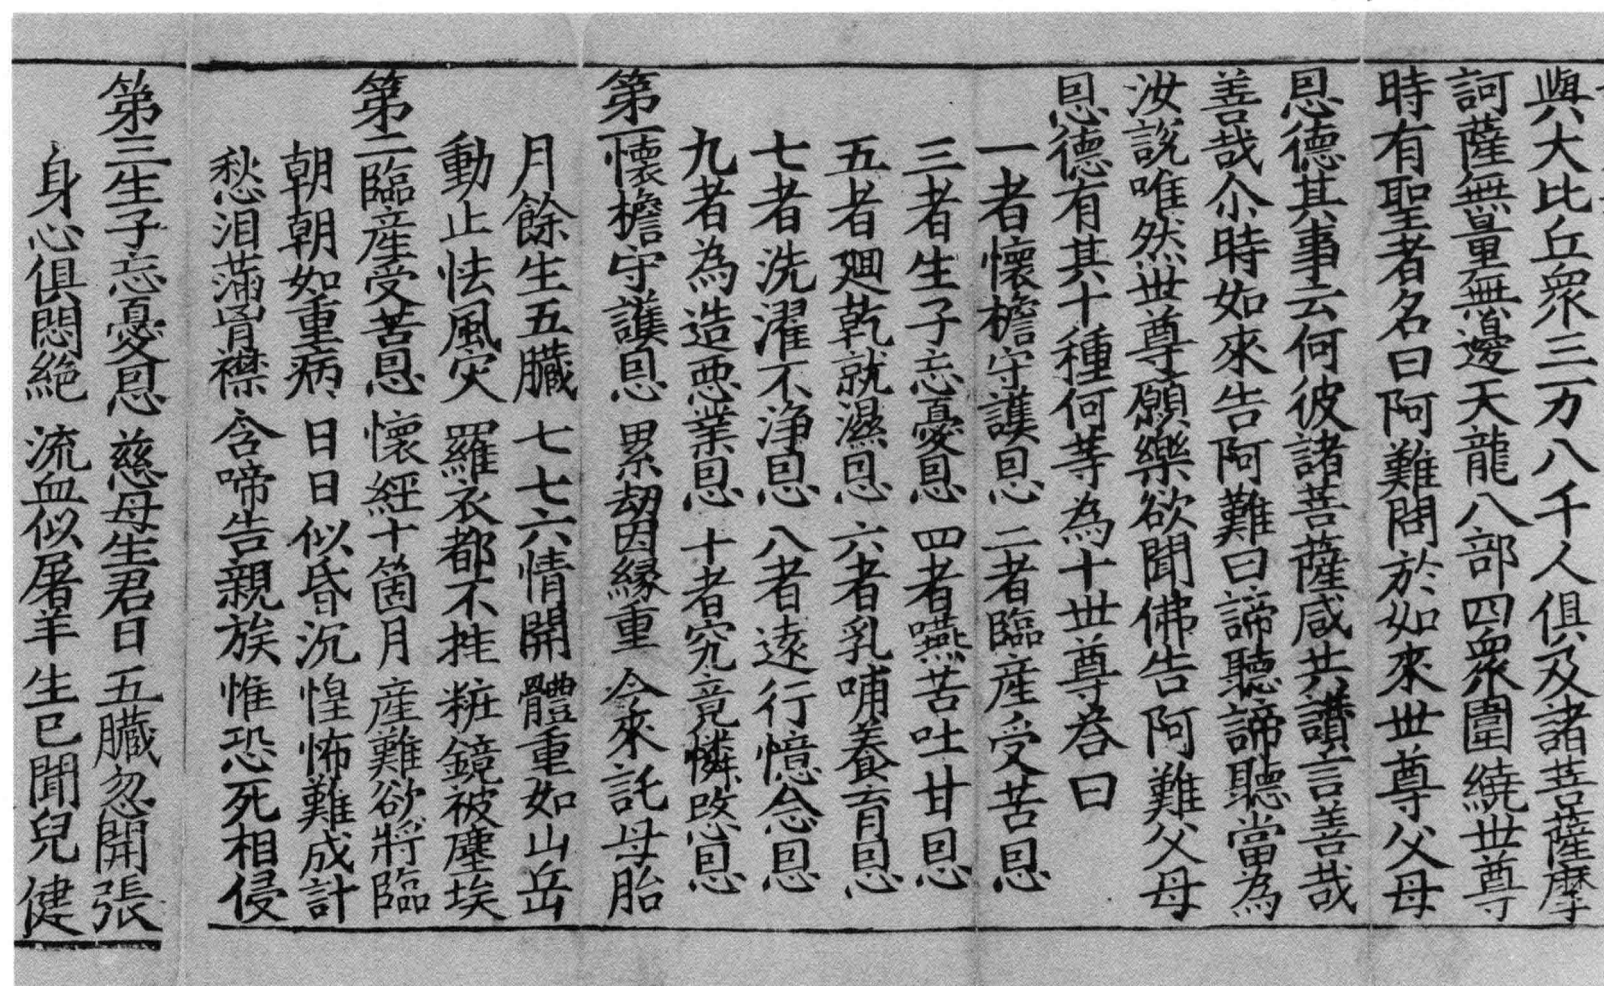 與大比丘衆三万八千人俱及諸菩薩摩
訶薩無量無邊天龍八部四衆圍繞世尊
時有聖者名曰阿難問於如來世尊父母
恩德其事云何彼諸菩薩咸共讚言善哉
善哉尒時如來告阿難曰諦聽諦聽當為
汝說唯然世尊願樂欲聞佛告阿難父母
恩德有其十種何等為十世尊荅曰
一者懷擔守護恩 二者臨産受苦恩
三者生子忘憂恩 四者嚥苦吐甘恩
五者廻乾就濕恩 六者乳哺養育恩
七者洗濯不淨恩 八者遠行憶念恩
九者為造惡業恩 十者究竟憐愍恩
第一懷擔守護恩 累劫因緣重 今來託母胎
月餘生五臟 七七六情開 體重如山岳
動止怯風灾 羅衣都不挂 粧鏡被塵埃
第二臨産受苦恩 懷經十箇月 産難欲將臨
朝朝如重病 日日似昏沉 惶怖難成計
愁泪滿胷襟 含啼告親族 惟恐死相侵
第三生子忘憂恩 慈母生君日 五臟忽開張
身心俱悶絕 流血似屠羊 生已聞兒健